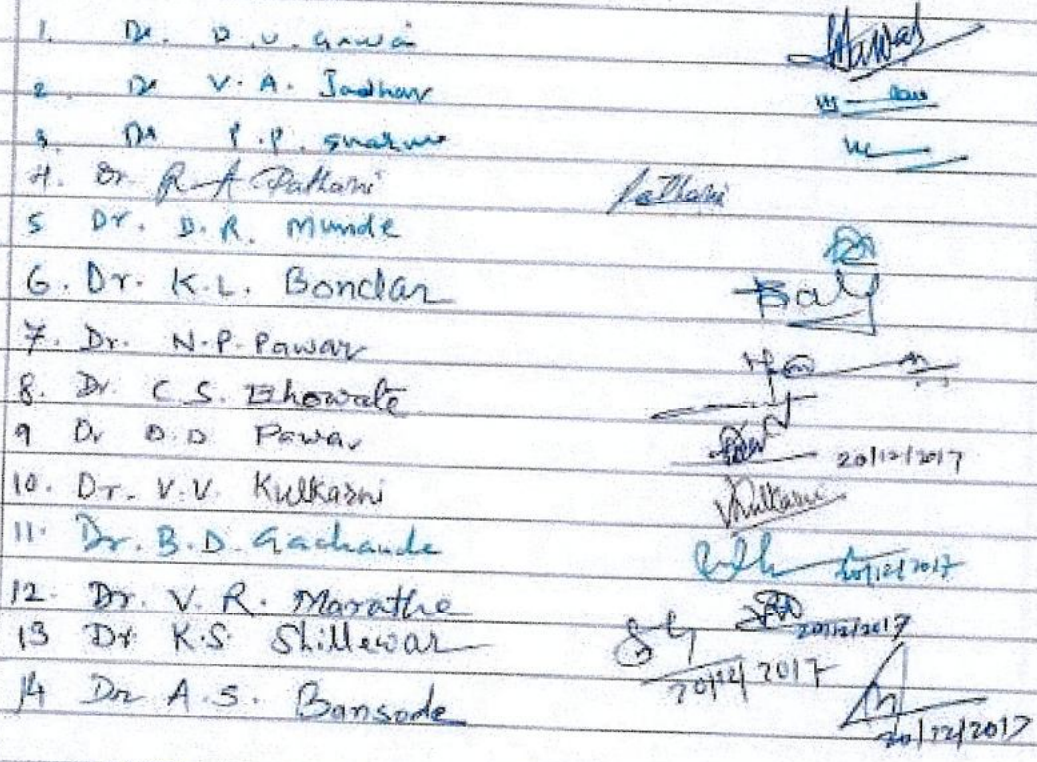 1. Dr. D.U. Gawai
2. Dr V. A. Jadhav
3. Dr P.P. Sharma
4. Dr. R A Pathani Pathani
5 Dr. D.R. Munde
6. Dr. K.L. Bondar
7. Dr. N.P. Pawar
8. Dr. C.S. Bhowate
9 Dr D.D Pawar 20/12/2017
10. Dr. V.V. Kulkarni VKulkarni
11. Dr. B.D. Gachande 20/12/2017
12. Dr. V. R. Marathe 20/12/2017
13 Dr K.S Shillewar 20/12/2017
14 Dr A.S. Bansode 20/12/2017